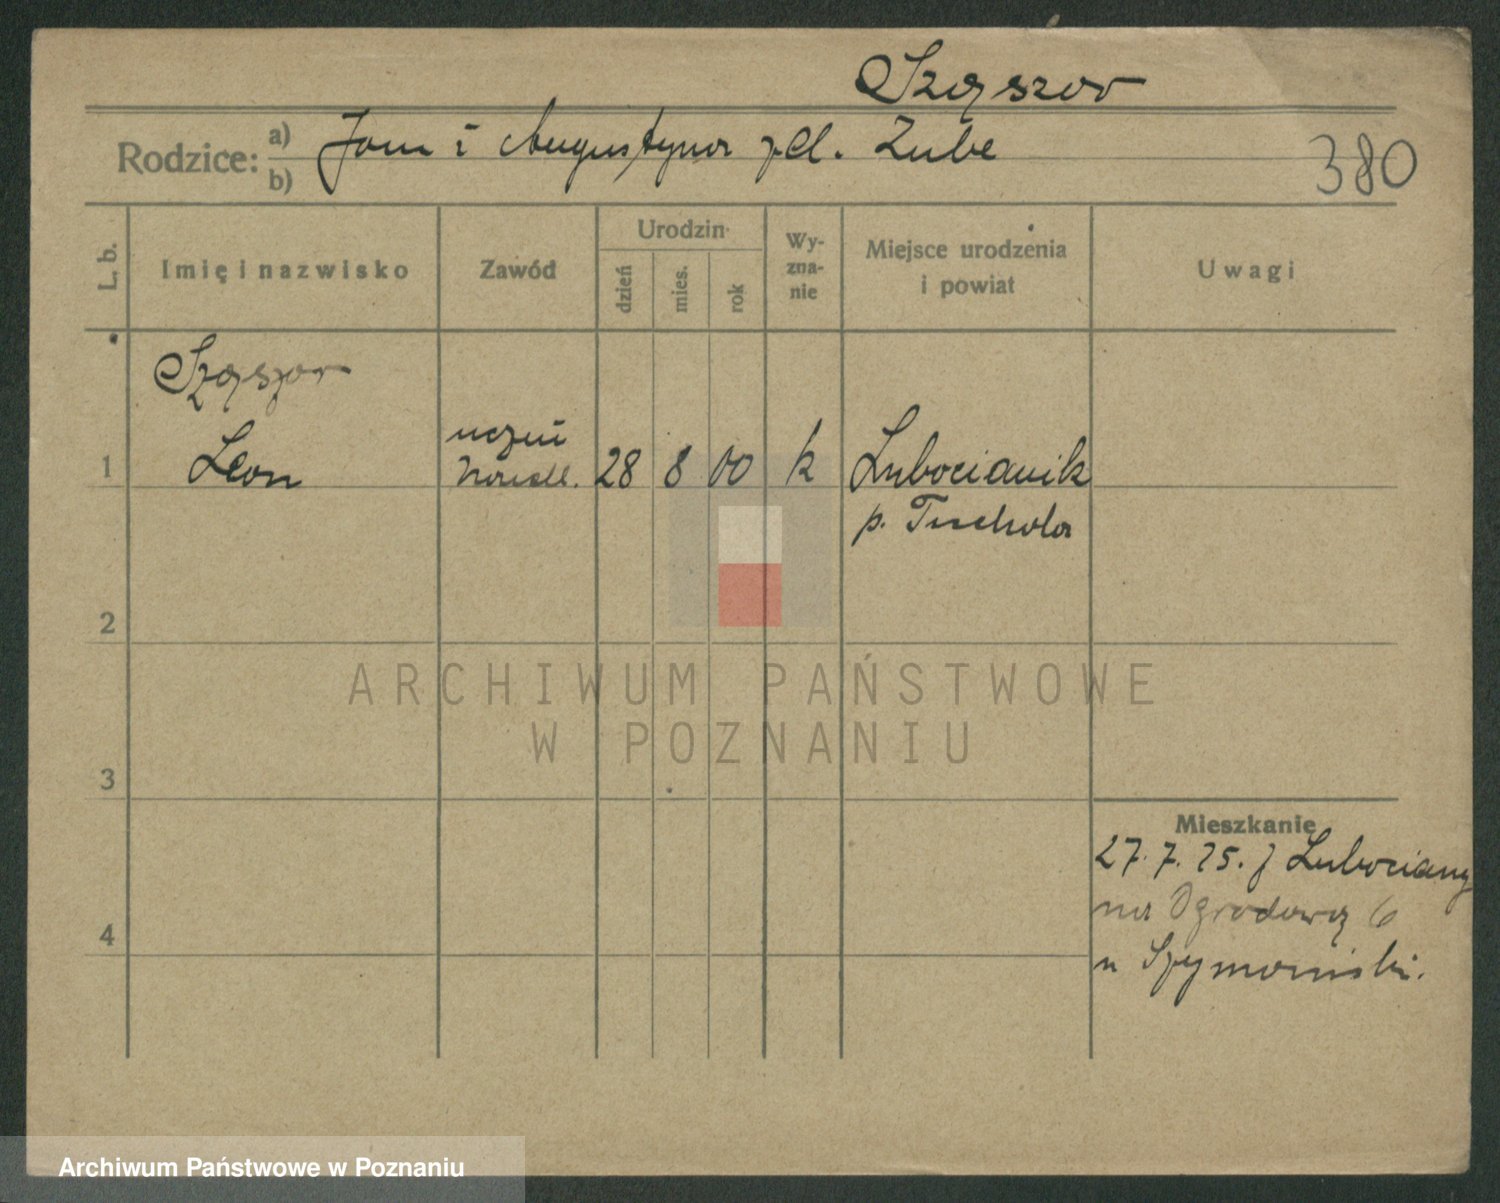 Szęszor
Rodzice: a) Jan i Augustyna z d. Zube
b)
380
L. b.
Imię i nazwisko
Zawód
Urodzin
dzień
mies.
rok
Wy-
zna-
nie
Miejsce urodzenia
i powiat
Uwagi
Szęszor
uczeń
1 Leon handl. 28 8 00 k Lubocianik
p. Tuchola
2
ARCHIWUM PAŃSTWOWE
W POZNANIU
3
Mieszkanie
27. 7. 25. z Lubociany
na Ogrodową 6
4
u Szymoniski.
Archiwum Państwowe w Poznaniu